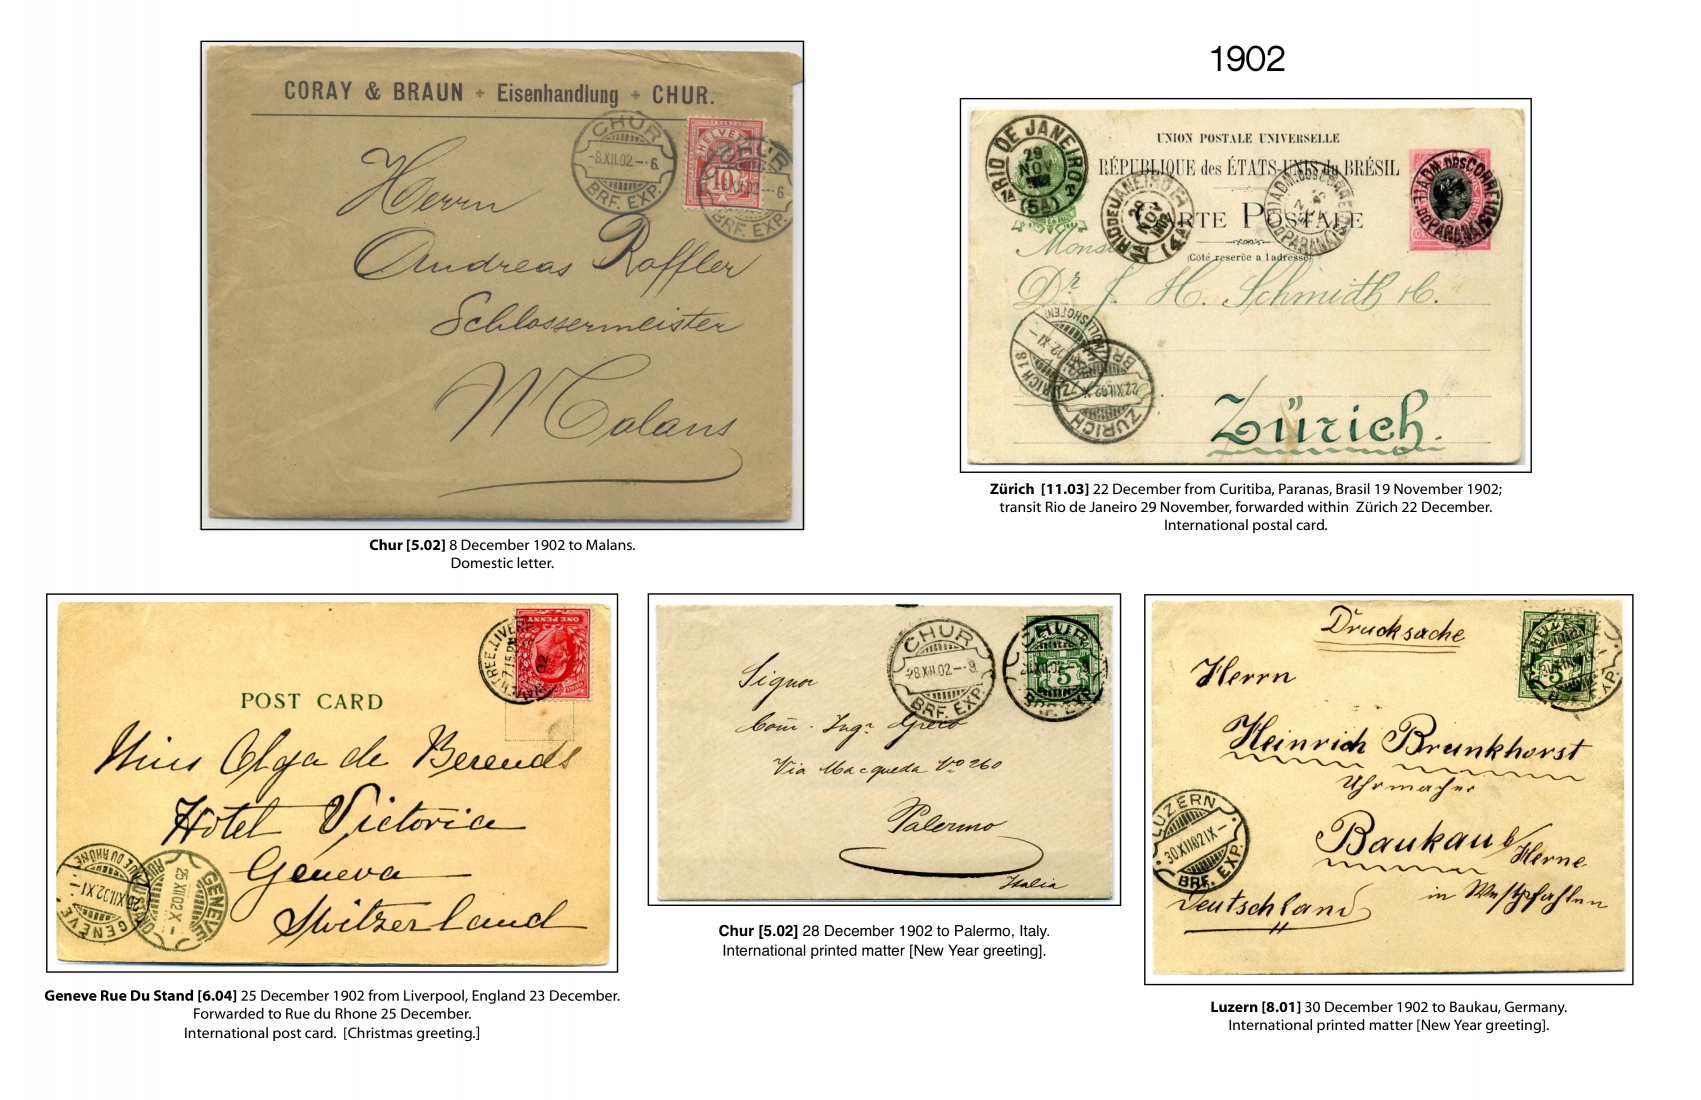 1902
CORAY & BRAUN + Eisenhandlung + CHUR.
CHUR
-8.XII.02.--6.
BRF. EXP.
HELVETIA
10
CHUR
-8.XII.02.--6.
BRF. EXP.
Herrn
Andreas Roffler
Schlossermeister
Malans
Chur [5.02] 8 December 1902 to Malans.
Domestic letter.
UNION POSTALE UNIVERSELLE
RÉPUBLIQUE des ÉTATS-UNIS du BRÉSIL
CARTE POSTALE
(Côté reservè a l'adresse)
RIO DE JANEIRO
29
NOV
(5A)
RIO DE JANEIRO
NOV
(4A)
ADM. DOS CORREIOS
DO PARANA
ADM. DOS CORREIOS
DO PARANA
Dr J. H. Schmidt
Zürich.
ZÜRICH
22.XII.02.X
BRF.
Zürich [11.03] 22 December from Curitiba, Paranas, Brasil 19 November 1902;
transit Rio de Janeiro 29 November, forwarded within Zürich 22 December.
International postal card.
ONE PENNY
7.15 PM
02
POST CARD
Miss Olga de Berends
Hotel Victoria
Geneva
Switzerland
GENÈVE
25.XII.02.XI-
RUE DU RHÔNE
GENÈVE
25.XII.02.X
Geneve Rue Du Stand [6.04] 25 December 1902 from Liverpool, England 23 December.
Forwarded to Rue du Rhone 25 December.
International post card. [Christmas greeting.]
CHUR
28.XII.02--9.
BRF. EXP.
CHUR
5
BRF. EXP.
Signor
Com. Ingr Greco
Via Macqueda No 260
Palermo
Italia
Chur [5.02] 28 December 1902 to Palermo, Italy.
International printed matter [New Year greeting].
Drucksache
5
Herrn
Heinrich Brunkhorst
Uhrmacher
Baukau b/Herne
in Westpfahlen
Deutschland
LUZERN
30.XII.02.IX-
BRF. EXP.
Luzern [8.01] 30 December 1902 to Baukau, Germany.
International printed matter [New Year greeting].